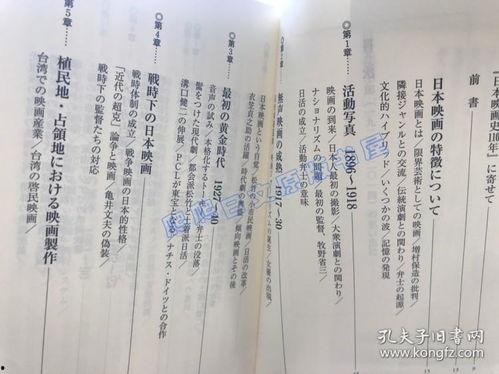 本映画史110年』に寄せて
前書
日本映画の特徴について
日本映画とは/限界芸術としての映画/増村保造の批判/
隣接ジャンルとの交流/伝統演劇との関わり/弁士の起源/
文化的ハイブリッド/いくつかの波/記憶の発現
◎第1章……活動写真 1896〜1918
映画の到来/日本人最初の撮影/大衆演劇との関わり/
ナショナリズムの問題/最初の監督、牧野省三/
日活の成立/活動弁士の意味
無声映画の成熟 1917〜30
日本映画という自覚
衣笠貞之助の活躍/時代劇の
傾向映画とその後
◎第3章……最初の黄金時代 1927〜40
音声の試み/本格化するトー
弁士の没落
髷をつけた現代劇/都会派松竹と土着派日活/
溝口健二の伸展/PCLが東宝
ナチス・ドイツとの合作
◎第4章……戦時下の日本映画
戦時体制の成立/戦争映画の日本的性格/
「近代の超克」論争と映画/亀井文夫の偽装/
戦時下の監督たちの対応
◎第5章……植民地・占領地における映画製作
台湾での映画産業/台湾の啓民映画/
孔夫子旧书网
www.kongfz.com